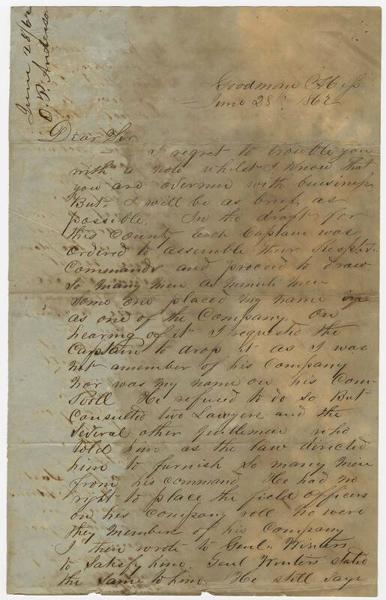 June 28/62
O. P. Anderson
Goodman Miss
June 28th 1862
Dear Sir
I regret to trouble you
with a note whilst I know that
you are overrun with buisiness
But I will be as brief as
possible. In the draft for
this County each Captain was
ordered to assemble their respective
Commands and proceed to draw
so many men as minute men
Some one placed my name
as one of the Company. On
hearing of it I requested the
Captain to drop it as I was
not a member of his Company
nor was my name on his Com
Roll He refused to do so But
Consulted two Lawyers and the
several other gentlemen who
told him as the law directed
him to furnish so many men
from his command. He had no
right to place the field officers
on his Company roll nor were
they members of his Company
I then wrote to Genl. Winters
to satisfy him. Genl Winters stated
the same to him. He still says